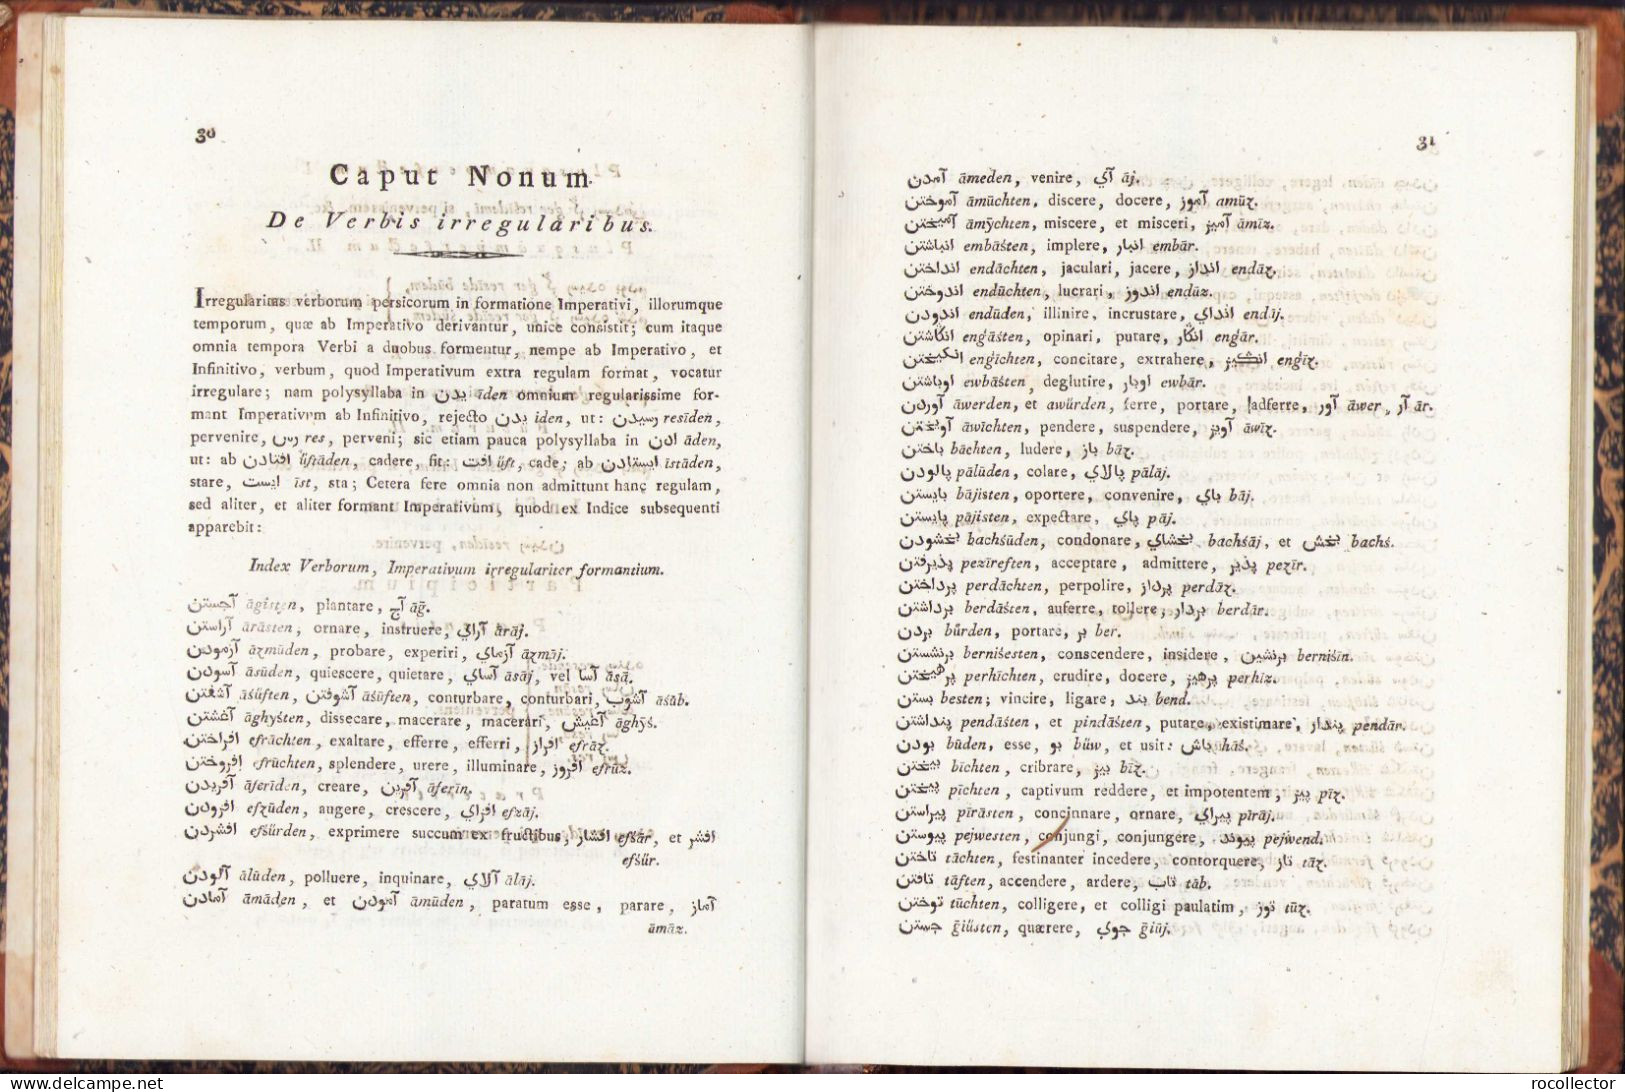 30
Caput Nonum.
De Verbis irregularibus.
Irregularitas verborum persicorum in formatione Imperativi, illorumque
temporum, quæ ab Imperativo derivantur, unice consistit; cum itaque
omnia tempora Verbi a duobus formentur, nempe ab Imperativo, et
Infinitivo, verbum, quod Imperativum extra regulam format, vocatur
irregulare; nam polysyllaba in یدن īden omnium regularissime for-
mant Imperativum ab Infinitivo, rejecto یدن iden, ut: رسیدن resīden,
pervenire, رس res, perveni; sic etiam pauca polysyllaba in ادن āden,
ut: ab افتادن üftāden, cadere, fit: افت üft, cade; ab ایستادن īstāden,
stare, ایست īst, sta; Cetera fere omnia non admittunt hanc regulam,
sed aliter, et aliter formant Imperativum, quod ex Indice subsequenti
apparebit:
Index Verborum, Imperativum irregulariter formantium.
آجستن āgisten, plantare, آج āğ.
آراستن ārāsten, ornare, instruere, آراي ārāj.
آزمودن āzmūden, probare, experiri, آزماي āzmāj.
آسودن āsūden, quiescere, quietare, آساي āsāj, vel آسا āsā.
آشفتن āśüften, آشوفتن āśūften, conturbare, conturbari, آشوب āśūb.
آغشتن āghyśten, dissecare, macerare, macerari, آغیش āghȳś.
افراختن efrāchten, exaltare, efferre, efferri, افراز efrāz.
افروختن efrūchten, splendere, urere, illuminare, افروز efrūz.
آفریدن āferīden, creare, آفرین āferīn.
افزودن efzūden, augere, crescere, افزاي efzāj.
افشردن efśürden, exprimere succum ex fructibus, افشار efśār, et افشر
efśür.
آلودن ālūden, polluere, inquinare, آلاي ālāj.
آمادن āmāden, et آمودن āmūden, paratum esse, parare, آماز
āmāz.
31
آمدن āmeden, venire, آي āj.
آموختن āmūchten, discere, docere, آموز amūz.
آمیختن āmȳchten, miscere, et misceri, آمیز āmīz.
انباشتن embāśten, implere, انبار embār.
انداختن endāchten, jaculari, jacere, انداز endāz.
اندوختن endūchten, lucrari, اندوز endūz.
اندودن endūden, illinire, incrustare, انداي endāj.
انگاشتن engāśten, opinari, putare, انگار engār.
انگیختن engīchten, concitare, extrahere, انگیز engīz.
اوباشتن ewbāśten, deglutire, اوبار ewbār.
آوردن āwerden, et awürden, ferre, portare, adferre, آور āwer, آر ār.
آویختن āwīchten, pendere, suspendere, آویز āwīz.
باختن bāchten, ludere, باز bāz.
پالودن pālūden, colare, پالاي pālāj.
بایستن bājisten, oportere, convenire, باي bāj.
پایستن pājisten, expectare, پاي pāj.
بخشودن bachśūden, condonare, بخشاي bachśāj, et بخش bachś.
پذیرفتن pezīreften, acceptare, admittere, پذیر pezīr.
پرداختن perdāchten, perpolire, پرداز perdāz.
برداشتن berdāśten, auferre, tollere, بردار berdār.
بردن bürden, portare, بر ber.
برنشستن berniśesten, conscendere, insidere, برنشین berniśin.
پرهیختن perhīchten, erudire, docere, پرهیز perhīz.
بستن besten; vincire, ligare, بند bend.
پنداشتن pendāśten, et pindāśten, putare, existimare, پندار pendār.
بودن būden, esse, بو büw, et usit: باش bāś.
بیختن bīchten, cribrare, بیز bīz.
پیختن pīchten, captivum reddere, et impotentem, پیز pīz.
پیراستن pīrāsten, concinnare, ornare, پیراي pīrāj.
پیوستن pejwesten, conjungi, conjungere, پیوند pejwend.
تاختن tāchten, festinanter incedere, contorquere, تاز tāz.
تافتن tāften, accendere, ardere, تاب tāb.
توختن tūchten, colligere, et colligi paulatim, توز tūz.
جستن ğiüsten, quærere, جوي ğiūj.
rocollector